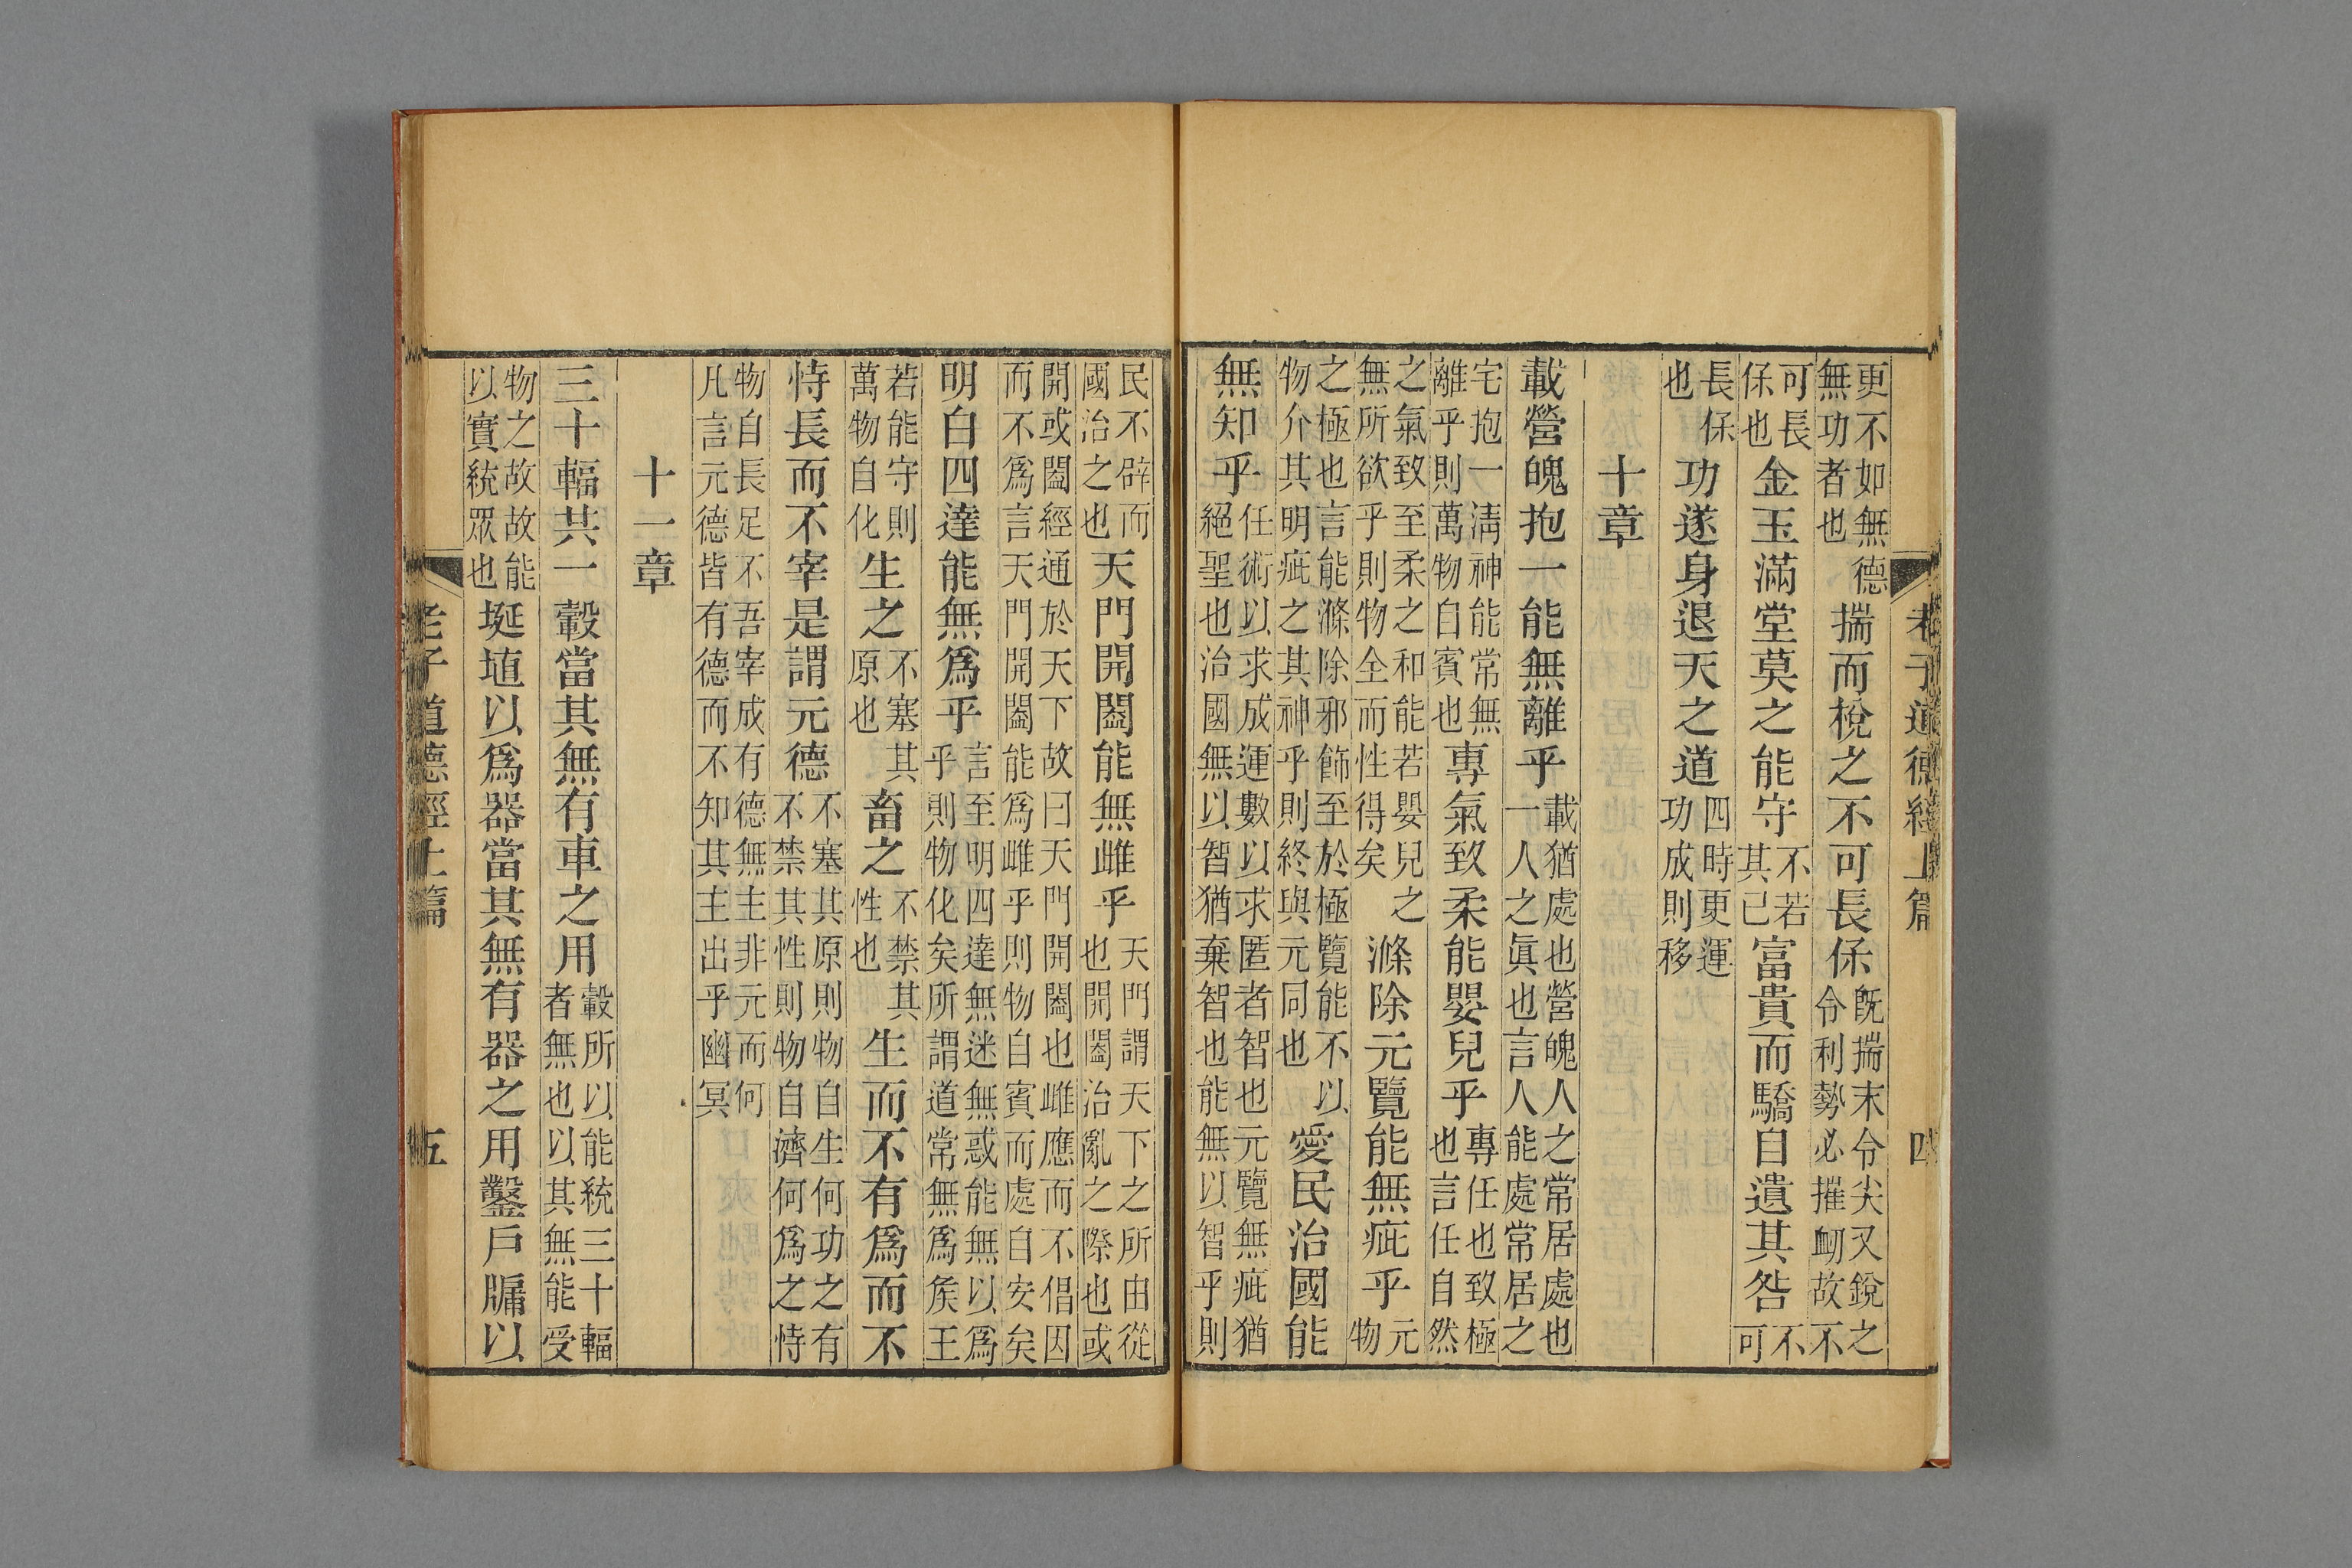 老子道德經上篇 四
更不如無德無功者也揣而梲之不可長保既揣末令尖又銳之令利勢必摧衂故不
可長保也金玉滿堂莫之能守不若其已富貴而驕自遺其咎不可
長保也功遂身退天之道四時更運功成則移
十章
載營魄抱一能無離乎載猶處也營魄人之常居處也一人之眞也言人能處常居之
宅抱一淸神能常無離乎則萬物自賓也專氣致柔能嬰兒乎專任也致極也言任自然
之氣致至柔之和能若嬰兒之無所欲乎則物全而性得矣滌除元覽能無疵乎元物
之極也言能滌除邪飾至於極覽能不以物介其明疵之其神乎則終與元同也愛民治國能
無知乎任術以求成運數以求匿者智也元覽無疵猶絕聖也治國無以智猶棄智也能無以智乎則
民不辟而國治之也天門開闔能無雌乎天門謂天下之所由從也開闔治亂之際也或
開或闔經通於天下故曰天門開闔也雌應而不倡因而不爲言天門開闔能爲雌乎則物自賓而處自安矣
明白四達能無爲乎言至明四達無迷無惑能無以爲乎則物化矣所謂道常無爲矦王
若能守則萬物自化生之不塞其原也畜之不禁其性也生而不有爲而不
恃長而不宰是謂元德不塞其原則物自生何功之有不禁其性則物自濟何爲之恃
物自長足不吾宰成有德無主非元而何凡言元德皆有德而不知其主出乎幽冥
十一章
三十輻共一轂當其無有車之用轂所以能統三十輻者無也以其無能受
物之故故能以實統眾也埏埴以爲器當其無有器之用鑿戶牖以
老子道德經上篇 五